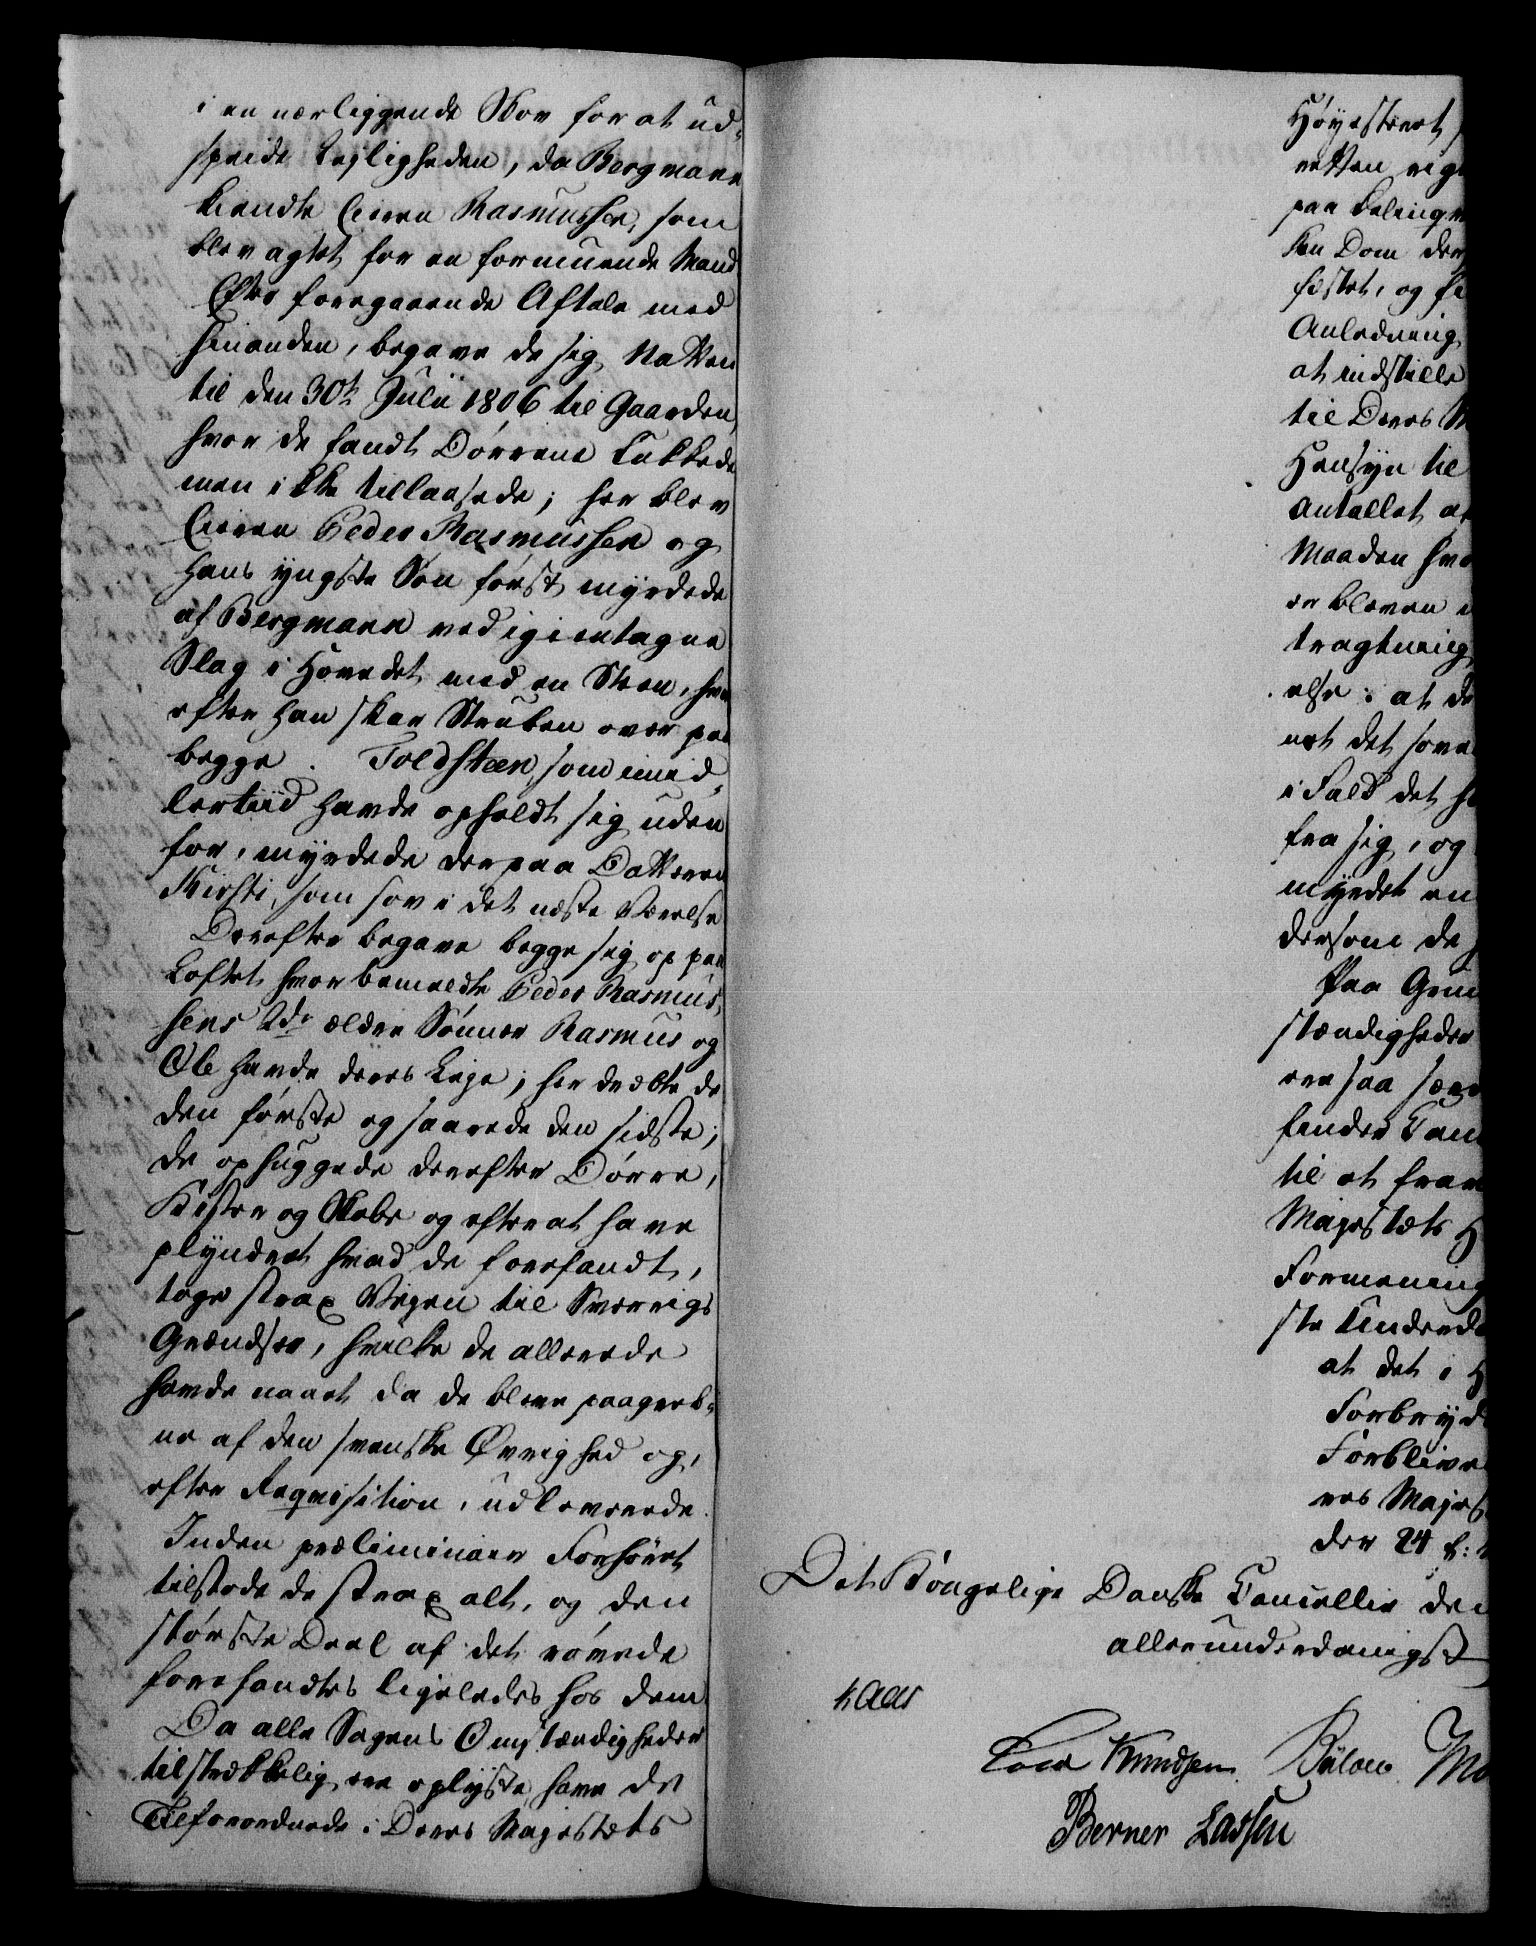 i en nærliggende Skov for at ud-
speide Leyligheden, da Bergmann
kiendte Eieren Rasmussen, som
blev agtet for en formuende Mand
Efter foregaaende Aftale med
hinanden, begave de sig Natten
til den 30te Julii 1806 til Gaarden,
hvor de fandt Dørrene lukkede
men ikke tillaasede; her blev
Eieren Peder Rasmussen og
hans yngste Søn først myrdede
af Bergmann ved igientagne
Slag i Hovedet med en Steen, hvor
efter han skar Struben over paa
begge. Toldsteen, som imid-
lertiid havde opholdt sig uden
for, myrdede derpaa Datteren
Kirsti, som sov i det næste Værelse
Derefter begave begge sig op paa
Loftet hvor bemeldte Peder Rasmus-
sens 2de ældre Sønner Rasmus og
Ole havde deres Leje; her dræbte de
den første og saarede den sidste;
de ophuggede derefter Dørre,
Kister og Skabe og efter at have
plyndret hvad de forefandt,
toge strax Vejen til Sverrigs
Grændser, hvilke de allerede
havde naaet da de bleve paagreb-
ne af den svenske Øvrighed og,
efter Requisition, udleverede.
Inden præliminair Forhøret
tilstode de strax alt, og den
største Deel af det røvede
forefandtes ligeledes hos dem.
Da alle Sagens Omstændigheder
tilstrækkelig ere oplyste, have de
Tilforordnede i Deres Majestæts
Høyesteret
retten
paa
den Dom der
fæstet, og
Anledning
at indstille
til Deres
Hensyn til
Antallet
Maaden
er bleven
tragtning
else: at
det
i Fald det
fra sig, og
myrdet en
dersom de
Paa
stændigheder
ere saa
finder
til at
Majestæts
Formening
ste Underd
at det i
Forbryd
Forblive
res Majes
der 24
Det Kongelige Danske Cancellie den
allerunderdanigst
Kaas
Knudsen Bülow
Berner Lassen